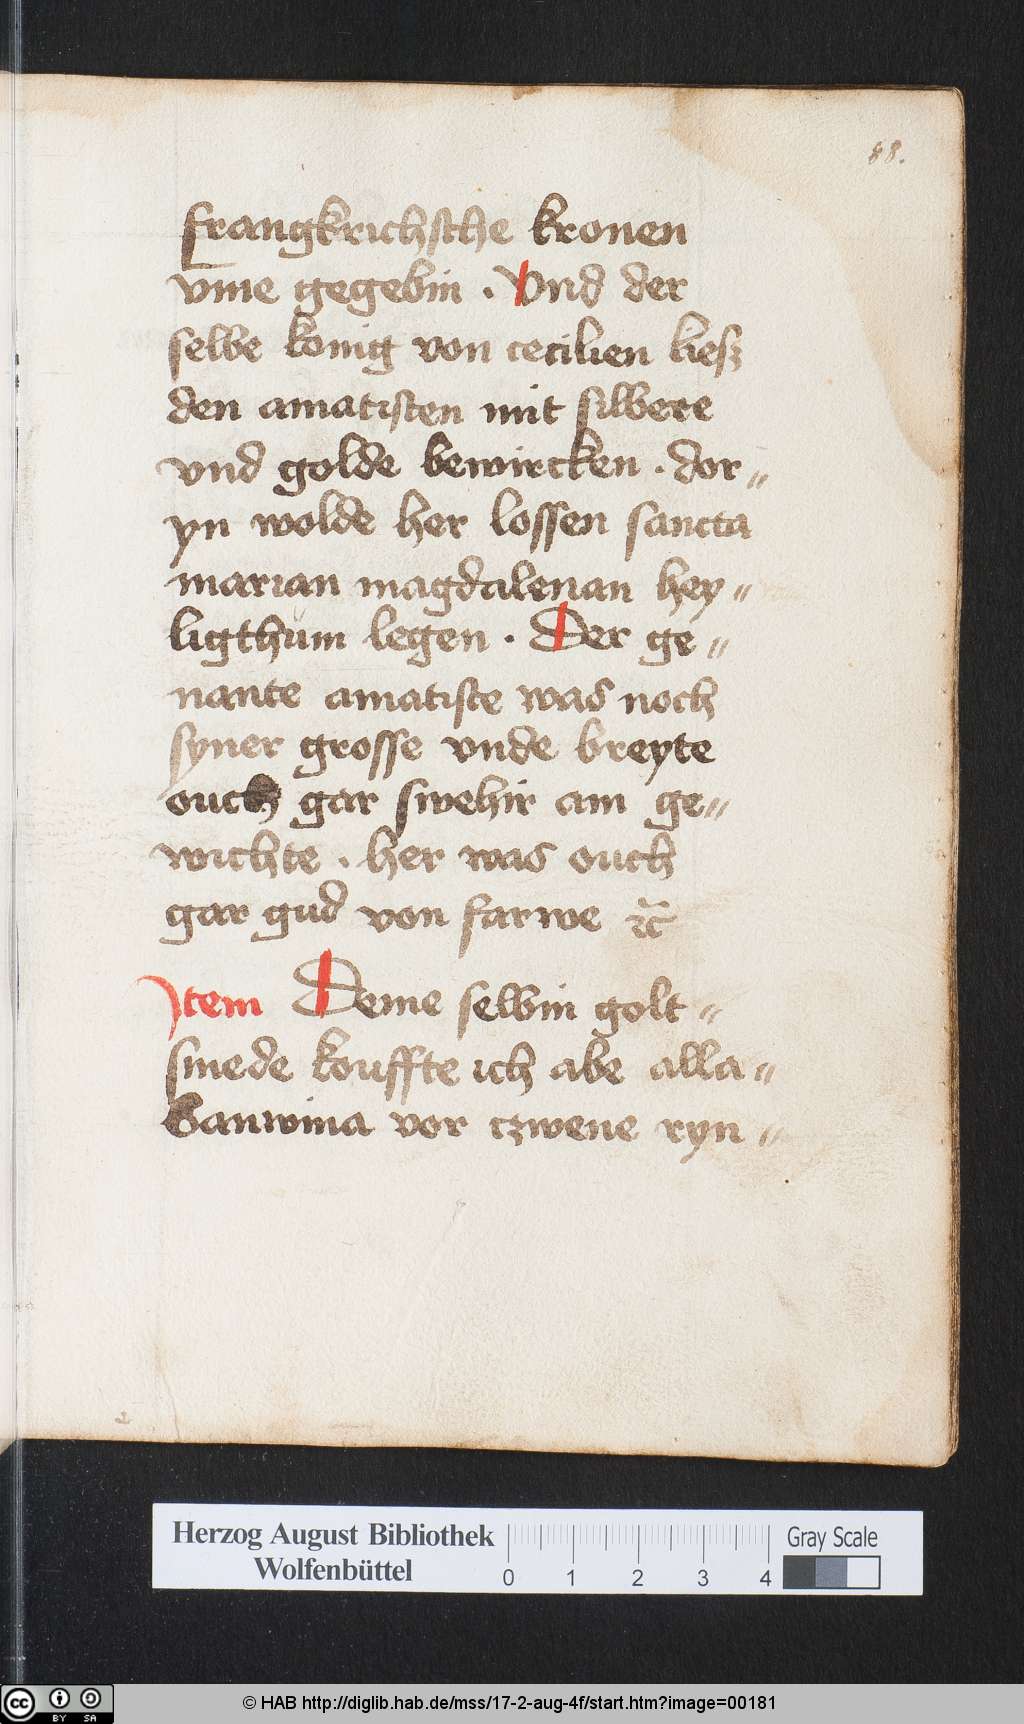 88.
frangkrichsche kronen
vme gegebin . Vnd der
selbe konig von cecilien liesz
den amatisten mit silbere
vnd golde bewircken . dor〃
yn wolde her lossen sancta
marian magdalenan hey〃
ligthum legen . Der ge〃
nante amatiste was noch
syner grosse vnde breyte
ouch gar swehir am ge〃
wichte . her was ouch
gar gud von farwe ꝛc̃
Item Deme selbin golt〃
smede kouffte ich abe alla〃
banwina vor czwene ryn〃
Herzog August Bibliothek
Wolfenbüttel
0 1 2 3 4
Gray Scale
cc BY SA
© HAB http://diglib.hab.de/mss/17-2-aug-4f/start.htm?image=00181